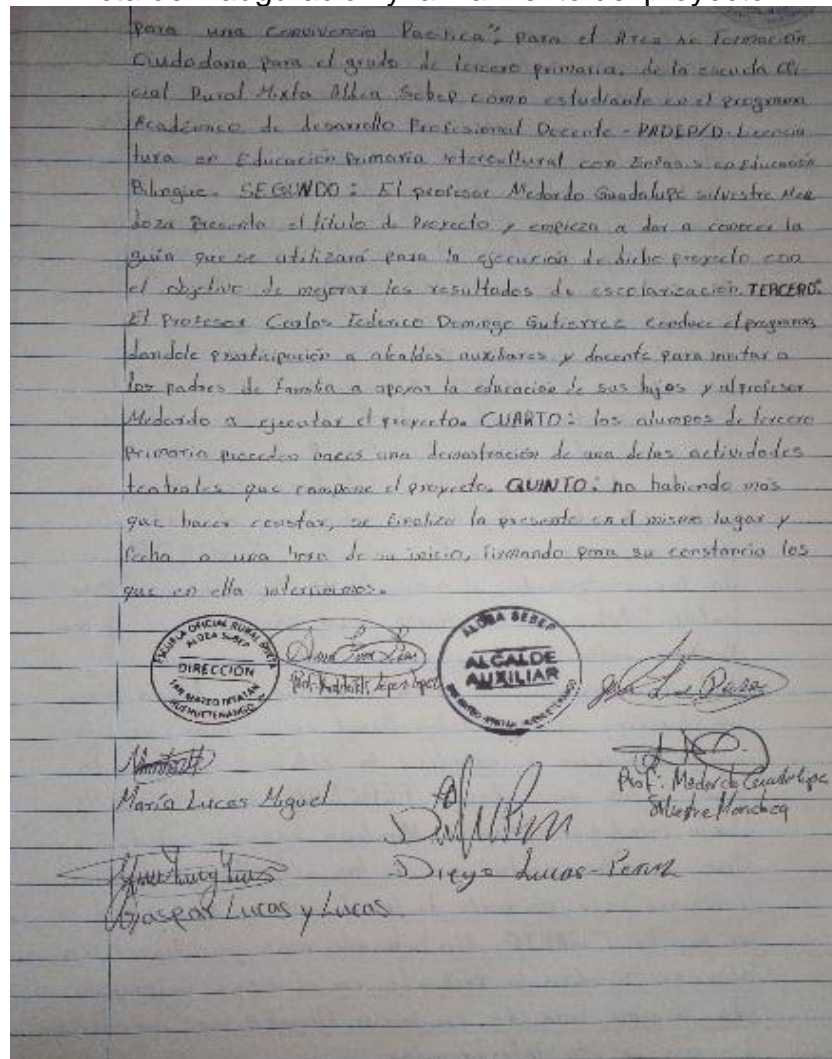 para una convivencia Pacífica", para el Area de Formación
Ciudadana para el grado de tercero primaria, de la escuela Ofi-
cial Rural Mixta Aldea Sebep como estudiante en el programa
Académico de desarrollo Profesional Docente - PADEP/D. Licencia
tura en Educación Primaria intercultural con Enfasis en Educación
Bilingüe. SEGUNDO: El profesor Medardo Guadalupe silvestre Men
doza Presenta el título de Proyecto y empieza a dar a conocer la
guía que se utilizará para la ejecución de dicho proyecto con
el objetivo de mejorar los resultados de escolarización. TERCERO:
El Profesor Carlos Federico Domingo Gutierrez conduce el programa,
dandole participación a alcaldes auxiliares y docente para invitar a
los padres de familia a apoyar la educación de sus hijos y al profesor
Medardo a ejecutar el proyecto. CUARTO: los alumnos de tercero
primaria proceden hacer una demostración de una de las actividades
teatrales que compone el proyecto. QUINTO: no habiendo más
que hacer constar, se finaliza la presente en el mismo lugar y
fecha a una hora de su inicio, firmando para su constancia los
que en ella intervenimos.
ESCUELA OFICIAL RURAL MIXTA
ALDEA SEBEP
DIRECCIÓN
SAN MATEO IXTATAN
HUEHUETENANGO
Prof. López López
ALDEA SEBEP
ALCALDE
AUXILIAR
SAN MATEO IXTATAN, HUEHUETENANGO
Prof: Medardo Guadalupe
Silvestre Mendoza
María Lucas Miguel
Diego Lucas
Gaspar Lucas y Lucas